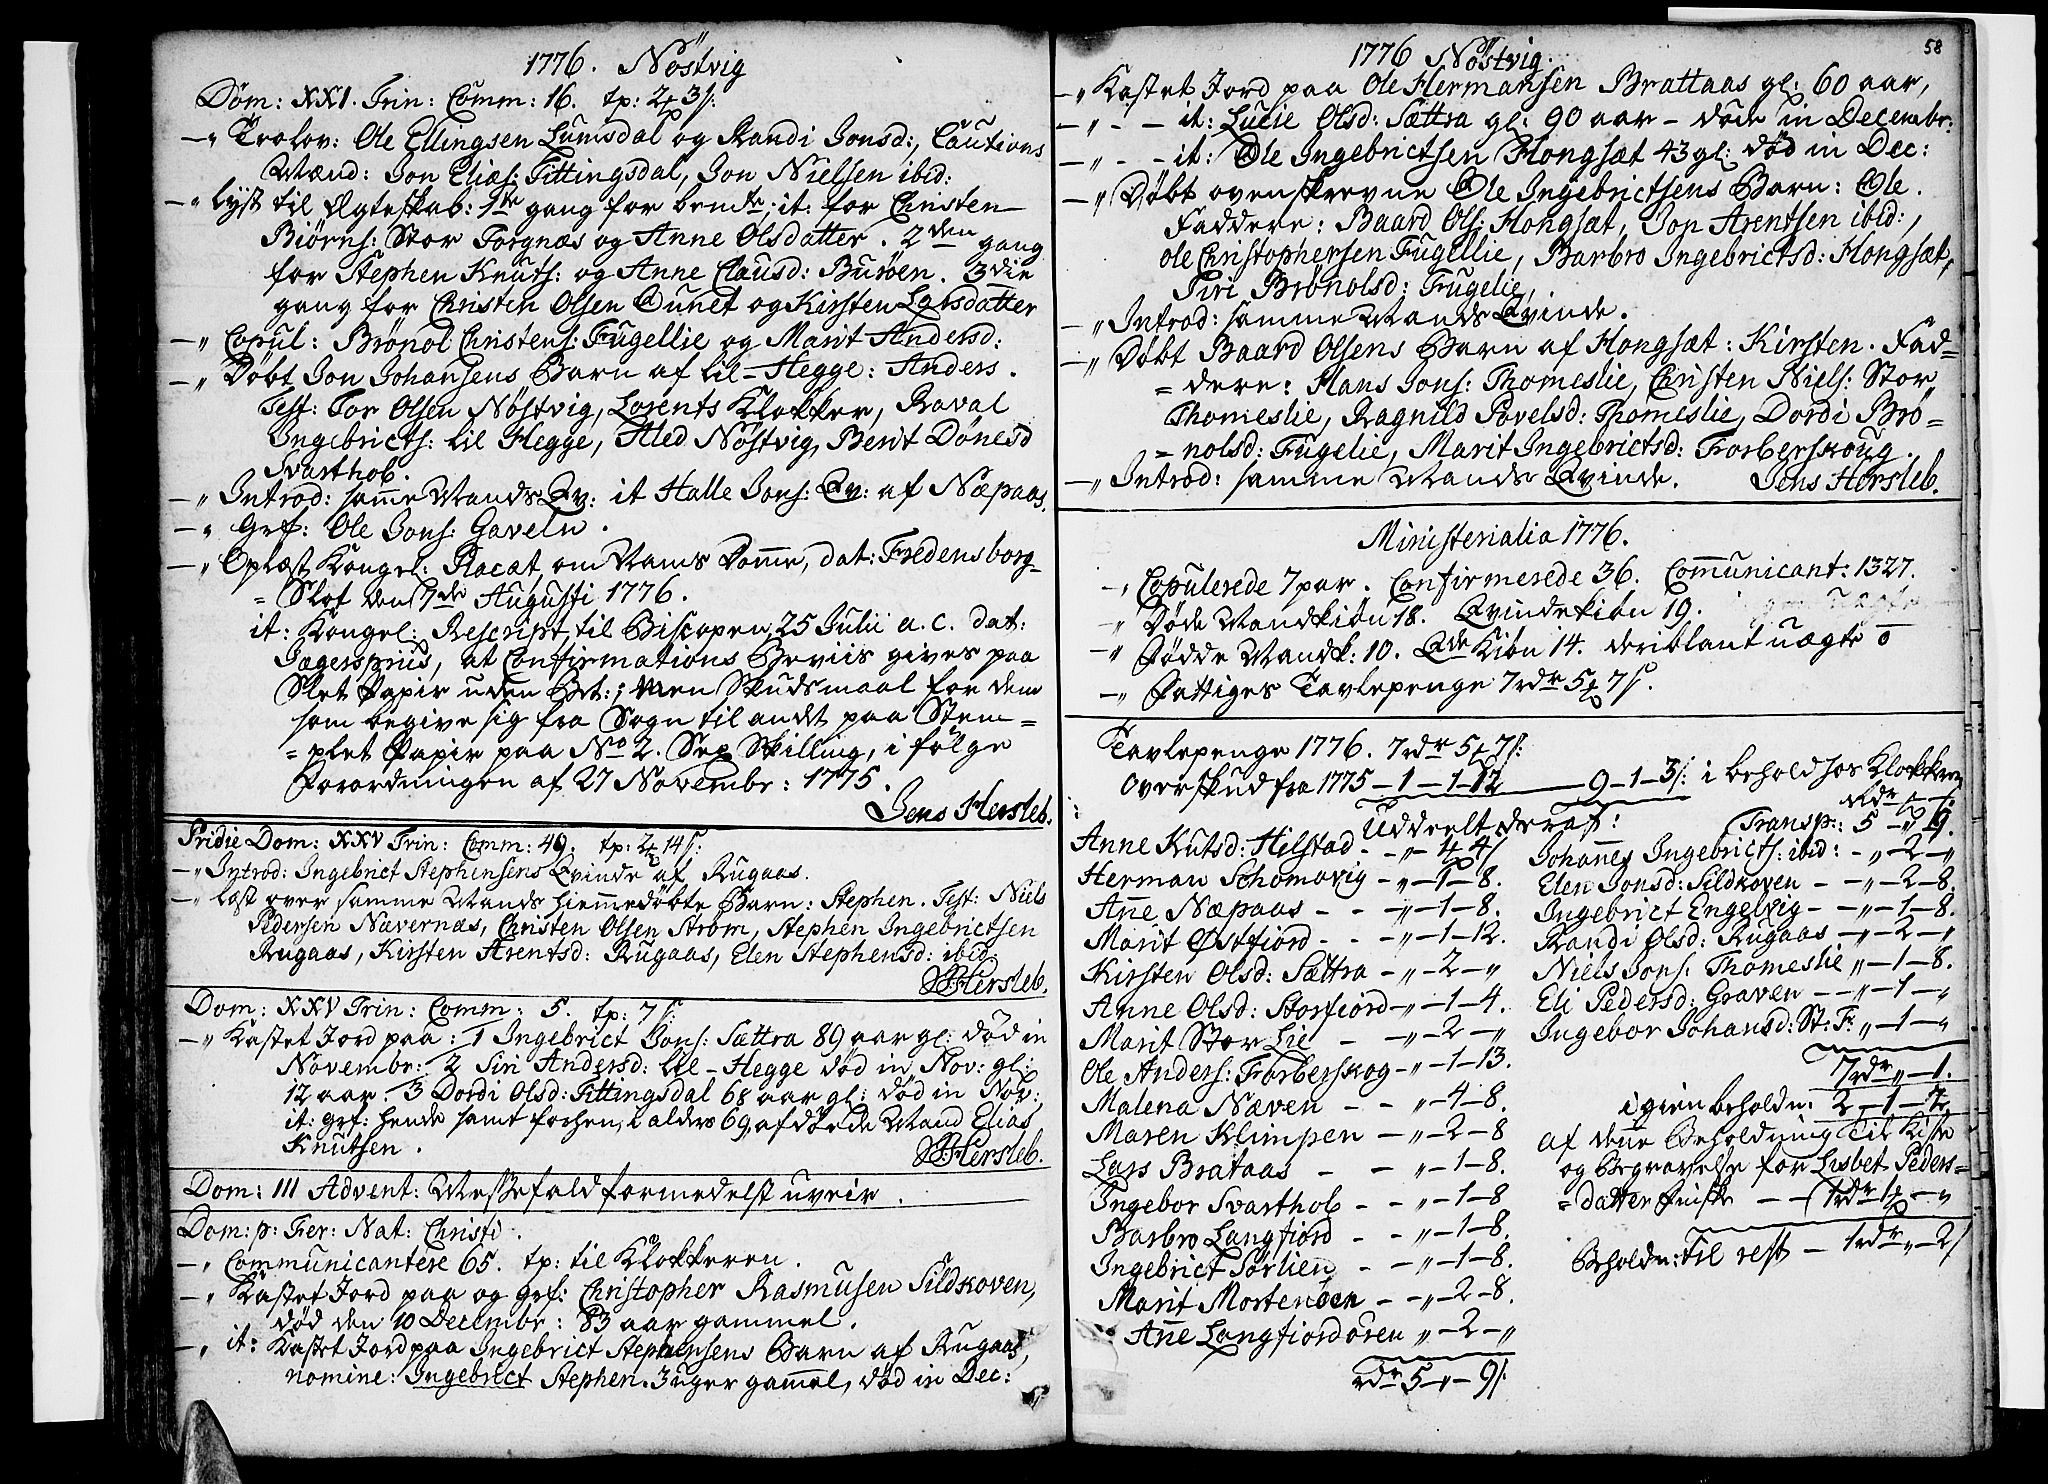 1776. Nöstvig
Dom: XXI. Trin: Comm: 16. tp: 2 3/:
—„ Trolov: Ole Ellingsen Lumsdal og Randi Jonsd:, Cautions
Mænd: Jon Elias: Fittingsdal, Jon Nielsen ibid:
—„ Lyst til Ægteskab: 1te gang for bemte; it: for Christen
Biörns: Stor Torgnæs og Anne Olsdatter. 2den gang
for Stephen Knuts: og Anne Clausd: Buröen. 3die
gang for Christen Olsen Aunet og Kirsten Larsdatter
—„ Copul: Brönol Christens: Fugellie og Marit Andersd:
—„ Döbt Jon Johansens Barn af lil-Hegge: Anders.
Test: Tor Olsen Nöstvig, Lorents Klokker, Raval
Ingebricts: lil Hegge, Aled Nöstvig, Berit Dönesd
Svarthob.
—„ Introd: samme Mands Qv: it Halle Jons: Qv: af Næpaas.
—„ Grf: Ole Jons: Gaveln.
—„ Oplæst Kongel: Placat, om Mams Domme, dat: Fredensborg-
= Slot den 7de Augusti 1776.
it: Kongel: Rescript til Biscopen 25 Julii a. c. dat:
Jægerspriis, at Confirmations Beviis gives paa
Slet Papir uden Bet:; Men Skudsmaal for dem
som begive sig fra Sogn til andt paa Stem=
=plet Papir paa No 2. Sex Skilling, i fölge
Forordningen af 27 Novembr: 1775.
Jens Hersleb.
Pridie Dom: XXV Trin: Comm: 49. tp: 2 14/:
—„ Introd: Ingebrict Stephensens Qvinde af Rugaas.
—„ Læst over samme Mands hiemmedöbte Barn: Stephen. Test: Niels
Pedersen Navernæs, Christen Olsen Ström, Stephen Ingebrictsen
Rugaas, Kirsten Arentsd: Rugaas, Elen Stephensd: ibid.
Hersleb.
Dom: XXV Trin: Comm: 5. tp: 7/:
—„ Kastet Jord paa: 1 Ingebrict Jons: Sættra 89 aar gl: död in
Novembr: 2 Siri Andersd: lil-Hegge död in Nov: gl:
12 aar. 3 Dordi Olsd: Fittingsdal 68 aar gl: död in Nov:,
it: grf: hende samt forhen i alders 69 afdöde Mand Elias
Knutsen.
Hersleb.
Dom: III Advent: Messefald formedelst uveir.
Dom: p: Fer: Nat: Christi.
—„ Communicantere 65. tp: til Klokkeren.
—„ Kastet Jord paa og grf: Christopher Rasmusen Sildkoven,
död den 10 Decembr: 83 aar gammel.
—„ it: Kastet Jord paa Ingebrict Stephensens Barn af Rugaas,
nomine: Ingebrict Stephen. 3 uger gammel, död in Dec:
58
1776 Nöstvig.
—„ Kastet Jord paa Ole Hermansen Brattaas gl: 60 aar,
—„ - - it: Lucie Olsd: Sættra gl: 90 aar - döde in Decembr:
—„ - - it: Ole Ingebrictsen Hongsæt 43 gl: död in Dec:
—„ Döbt ovenskrevne Ole Ingebrictsens Barn: Ole.
Faddere: Baard Ols: Hongsæt, Jon Arentsen ibid:,
Ole Christophersen Fugellie, Barbro Ingebrictsd: Hongsæt,
Siri Brönolsd: Fugelie,
—„ Introd: samme Mands Qvinde.
—„ Döbt Baard Olsens Barn af Hongsæt: Kirsten. Fad=
=dere: Hans Jons: Thomeslie, Christen Niels: Stor
Thomeslie, Ragnild Povelsd: Thomeslie, Dordi Brö=
=nolsd: Fugelie, Marit Ingebrictsd: Forberskoug.
—„ Introd: samme Mands Qvinde. Jens Hersleb.
Ministerialia 1776.
—„ Copulerede 7 par. Confirmerede 36. Communicant: 1327.
—„ Döde Mandkiön 18. Qvindekiön 19.
—„ Födde Mandk: 10. Qde Kiön 14. deriblant uægte 0
—„ Fattiges Tavlepenge 7rdr 5 7/.
Tavlepenge 1776. 7rdr 5 7/:
Overskud fra 1775 — 1 — 1 — 12 — 9—1—3/: i behold hos Klokkeren
Uddeelt deraf:
Anne Kutsd: Hilstad - - „ - 4 4/
Herman Schomovig - „ - 1 - 8.
Anne Næpaas - - - „ - 1 - 8.
Marit Østfiord - - - „ - 1 - 12.
Kirsten Olsd: Sættra - „ - 2 - „
Anne Olsd: Storfiord - „ - 1 - 4.
Marit Stor Lie - - „ - 2 - „
Ole Anders: Forberskog - „ - 1 - 13.
Malena Næven - - „ - 4 - 8.
Maren Klimpen - „ - 2 - 8
Lars Brataas - - „ - 1 - 8.
Ingebor Svarthob - - „ - 1 - 8
Barbro Langfiord - - „ - 1 - 8.
Ingebrict Sörlien - - „ - 1 - 8.
Marit Mortensöen - - „ - 2 - 8.
Anne Langfiordören „ - 2 - „
rdr 5 - „ - 9/:
Rdr /:
Transp: 5 - „ 9.
Johannes Ingebricts: ibid: - „ - 2 - „
Elen Jonsd: Sildkoven - - „ - 2 - 8.
Ingebrict Engelvig - - „ - 1 - 8.
Randi Olsd: Rugaas - „ - 2 - „
Niels Jons: Thomeslie „ - 1 - 8.
Eli Pedersd: Graven - - „ - 1 - „
Ingebor Johansd: St: F: „ - 1 - „
7rdr „ - 1.
igien beholdn: 2 - 1 - 2
af denne Beholdning til Kiste
og Begravelse for Lisbet Peders=
=datter Finske - - 1rdr 1 - „
Beholdn: til rest - 1rdr „ - 2/